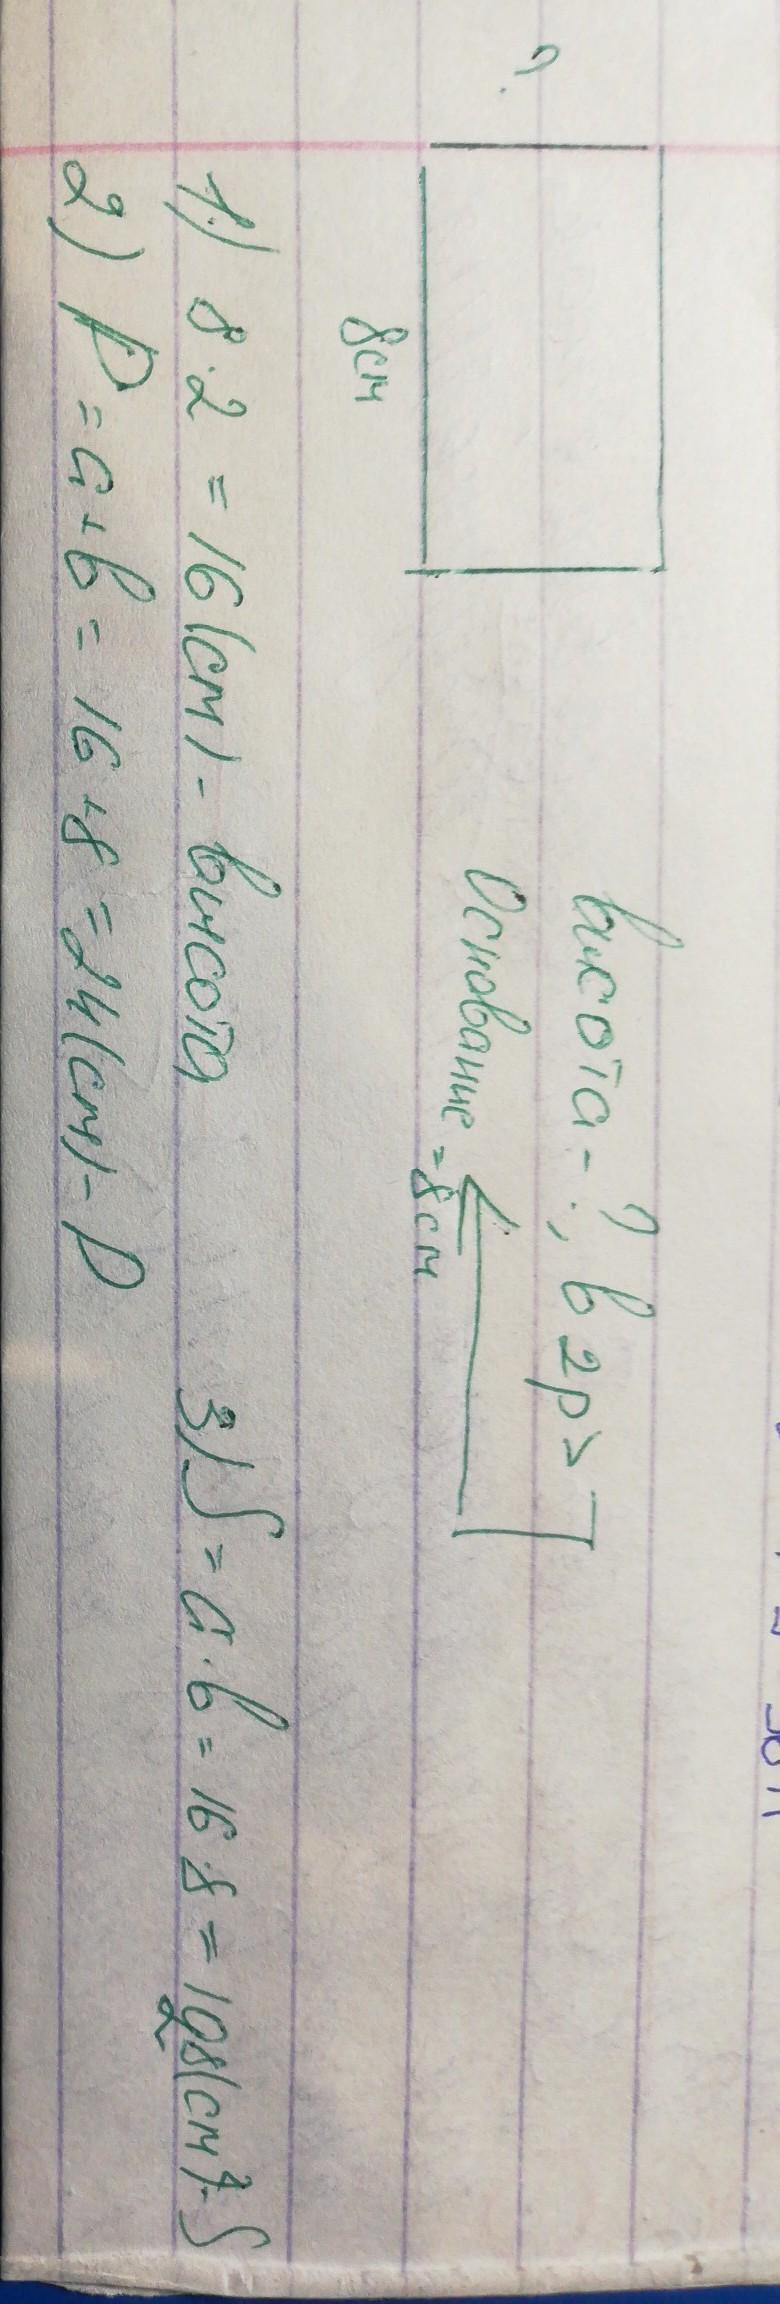 высота - ?, в 2 р >
Основание = 8 см
?
8 см
1) 8 · 2 = 16 (см) - высота
2) P = a + b = 16 + 8 = 24 (см) - P
3) S = a · b = 16 · 8 = 128 (см²) - S